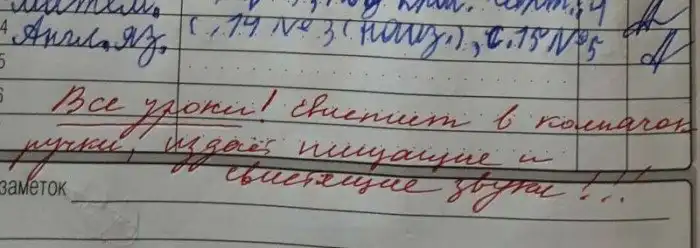 матем.
4 Англ.яз. с.14 №3(наиз.), с.15 №5
5
6
Все уроки! свистит в колпачок
ручки, издаёт пищащие и
свистящие звуки!!!
заметок